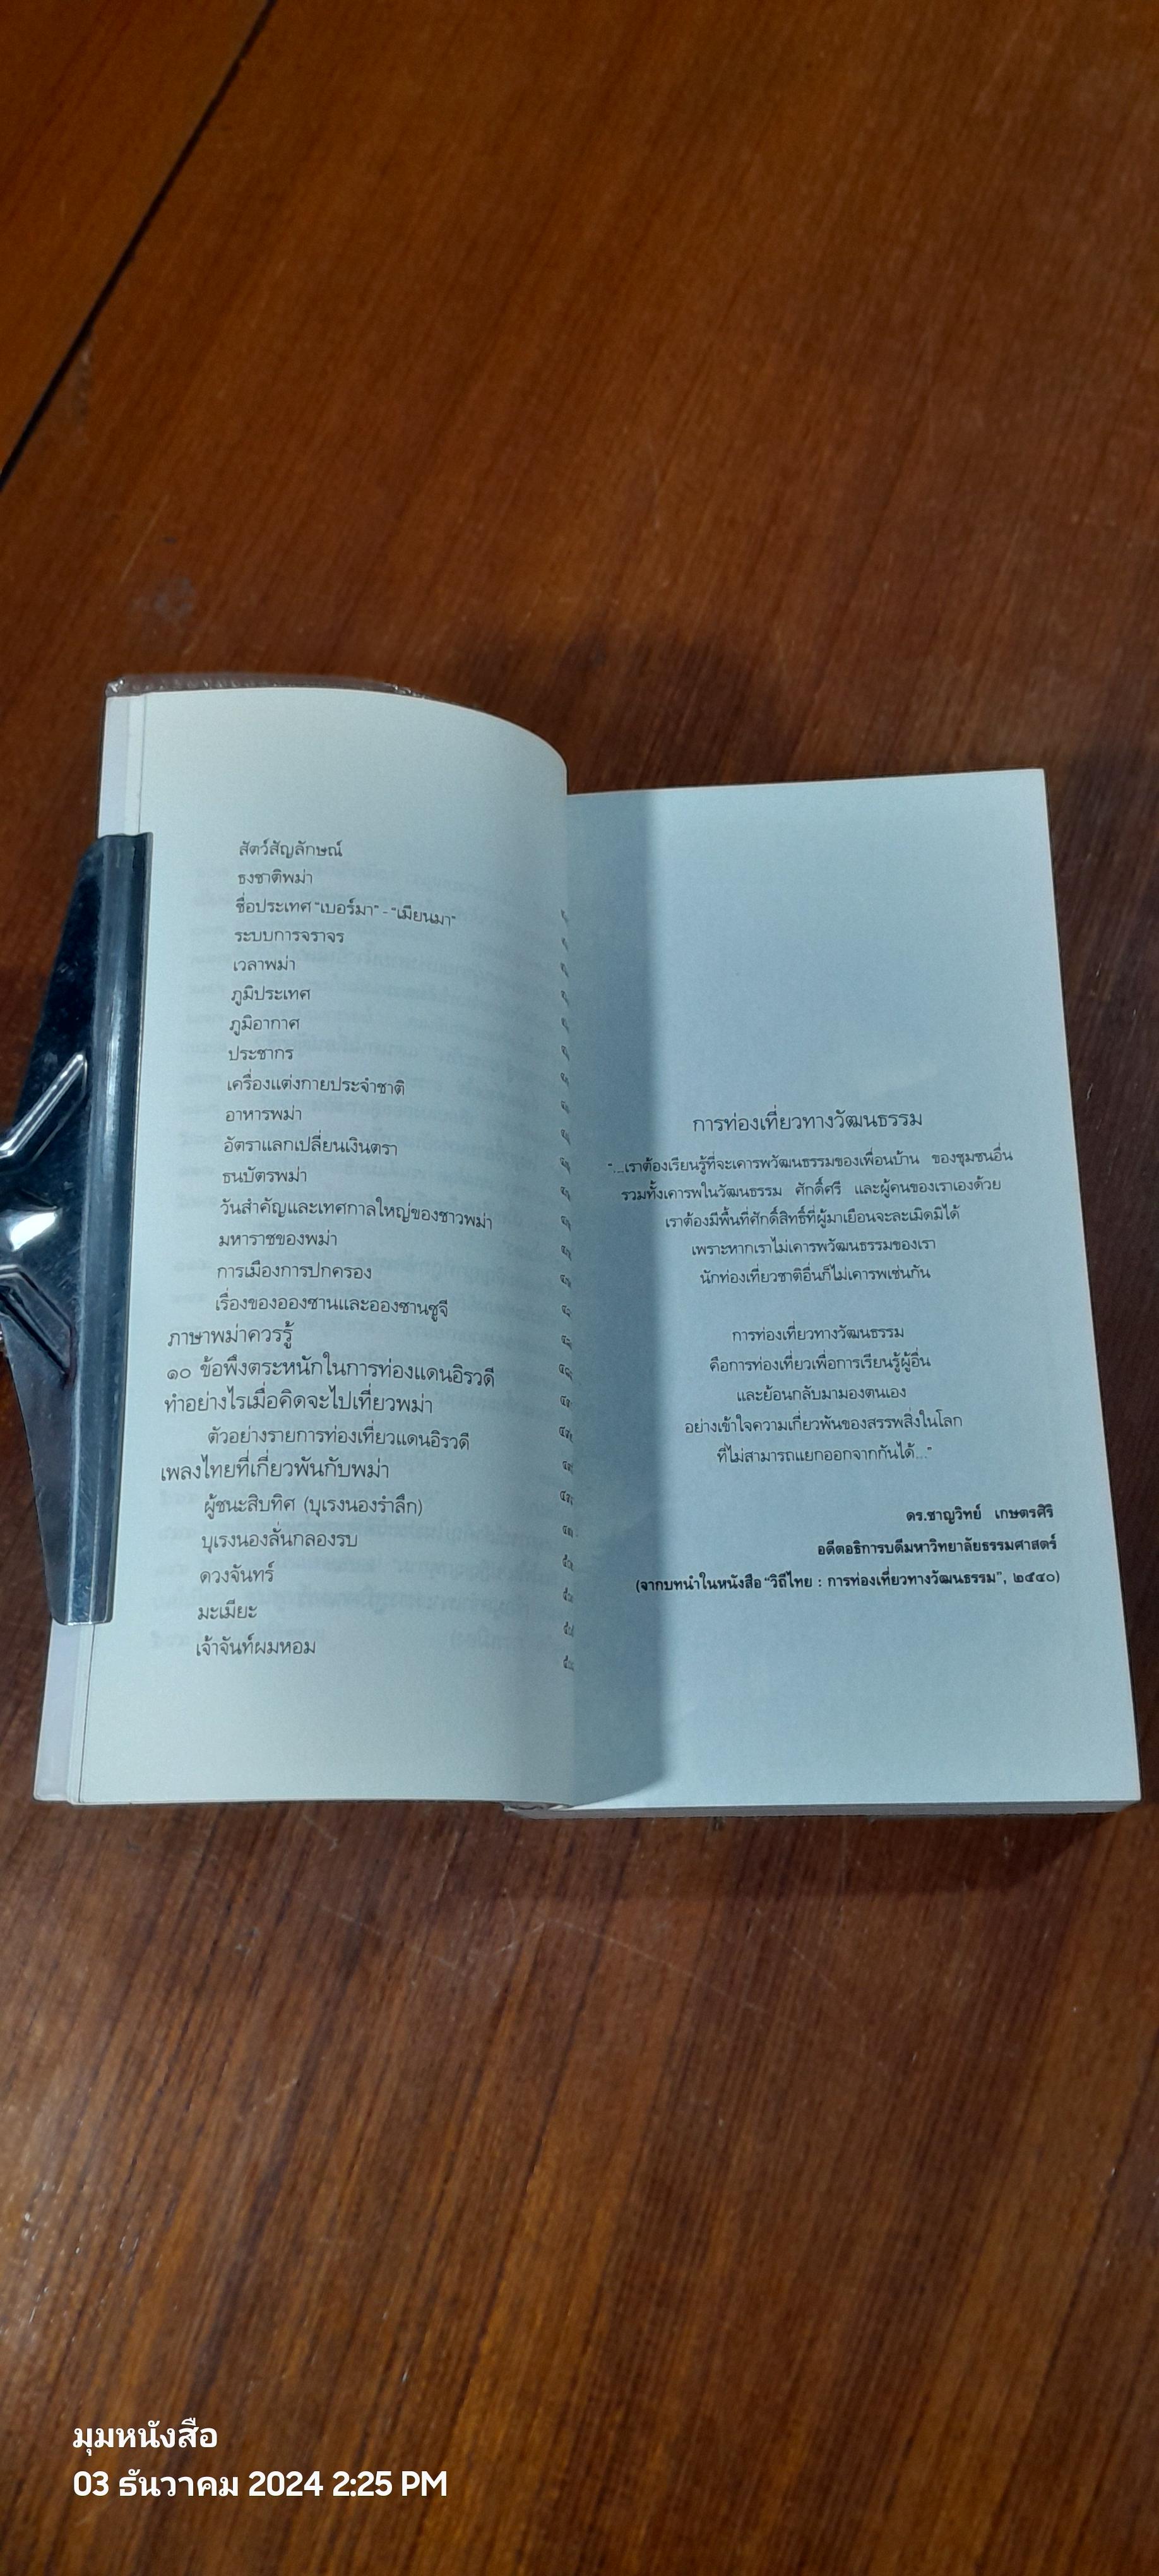 สัตว์สัญลักษณ์
ธงชาติพม่า
ชื่อประเทศ "เบอร์มา" - "เมียนมา"
ระบบการจราจร
เวลาพม่า
ภูมิประเทศ
ภูมิอากาศ
ประชากร
เครื่องแต่งกายประจำชาติ
อาหารพม่า
อัตราแลกเปลี่ยนเงินตรา
ธนบัตรพม่า
วันสำคัญและเทศกาลใหญ่ของชาวพม่า
มหาราชของพม่า
การเมืองการปกครอง
เรื่องของอองซานและอองซานซูจี
ภาษาพม่าควรรู้
๑๐ ข้อพึงตระหนักในการท่องแดนอิรวดี
ทำอย่างไรเมื่อคิดจะไปเที่ยวพม่า
ตัวอย่างรายการท่องเที่ยวแดนอิรวดี
เพลงไทยที่เกี่ยวพันกับพม่า
ผู้ชนะสิบทิศ (บุเรงนองรำลึก)
บุเรงนองลั่นกลองรบ
ดวงจันทร์
มะเมียะ
เจ้าจันท์ผมหอม
การท่องเที่ยวทางวัฒนธรรม
"...เราต้องเรียนรู้ที่จะเคารพวัฒนธรรมของเพื่อนบ้าน ของชุมชนอื่น
รวมทั้งเคารพในวัฒนธรรม ศักดิ์ศรี และผู้คนของเราเองด้วย
เราต้องมีพื้นที่ศักดิ์สิทธิ์ที่ผู้มาเยือนจะละเมิดมิได้
เพราะหากเราไม่เคารพวัฒนธรรมของเรา
นักท่องเที่ยวชาติอื่นก็ไม่เคารพเช่นกัน
การท่องเที่ยวทางวัฒนธรรม
คือการท่องเที่ยวเพื่อการเรียนรู้ผู้อื่น
และย้อนกลับมามองตนเอง
อย่างเข้าใจความเกี่ยวพันของสรรพสิ่งในโลก
ที่ไม่สามารถแยกออกจากกันได้..."
ดร.ชาญวิทย์ เกษตรศิริ
อดีตอธิการบดีมหาวิทยาลัยธรรมศาสตร์
(จากบทนำในหนังสือ "วิถีไทย : การท่องเที่ยวทางวัฒนธรรม", ๒๕๔๐)
มุมหนังสือ
03 ธันวาคม 2024 2:25 PM